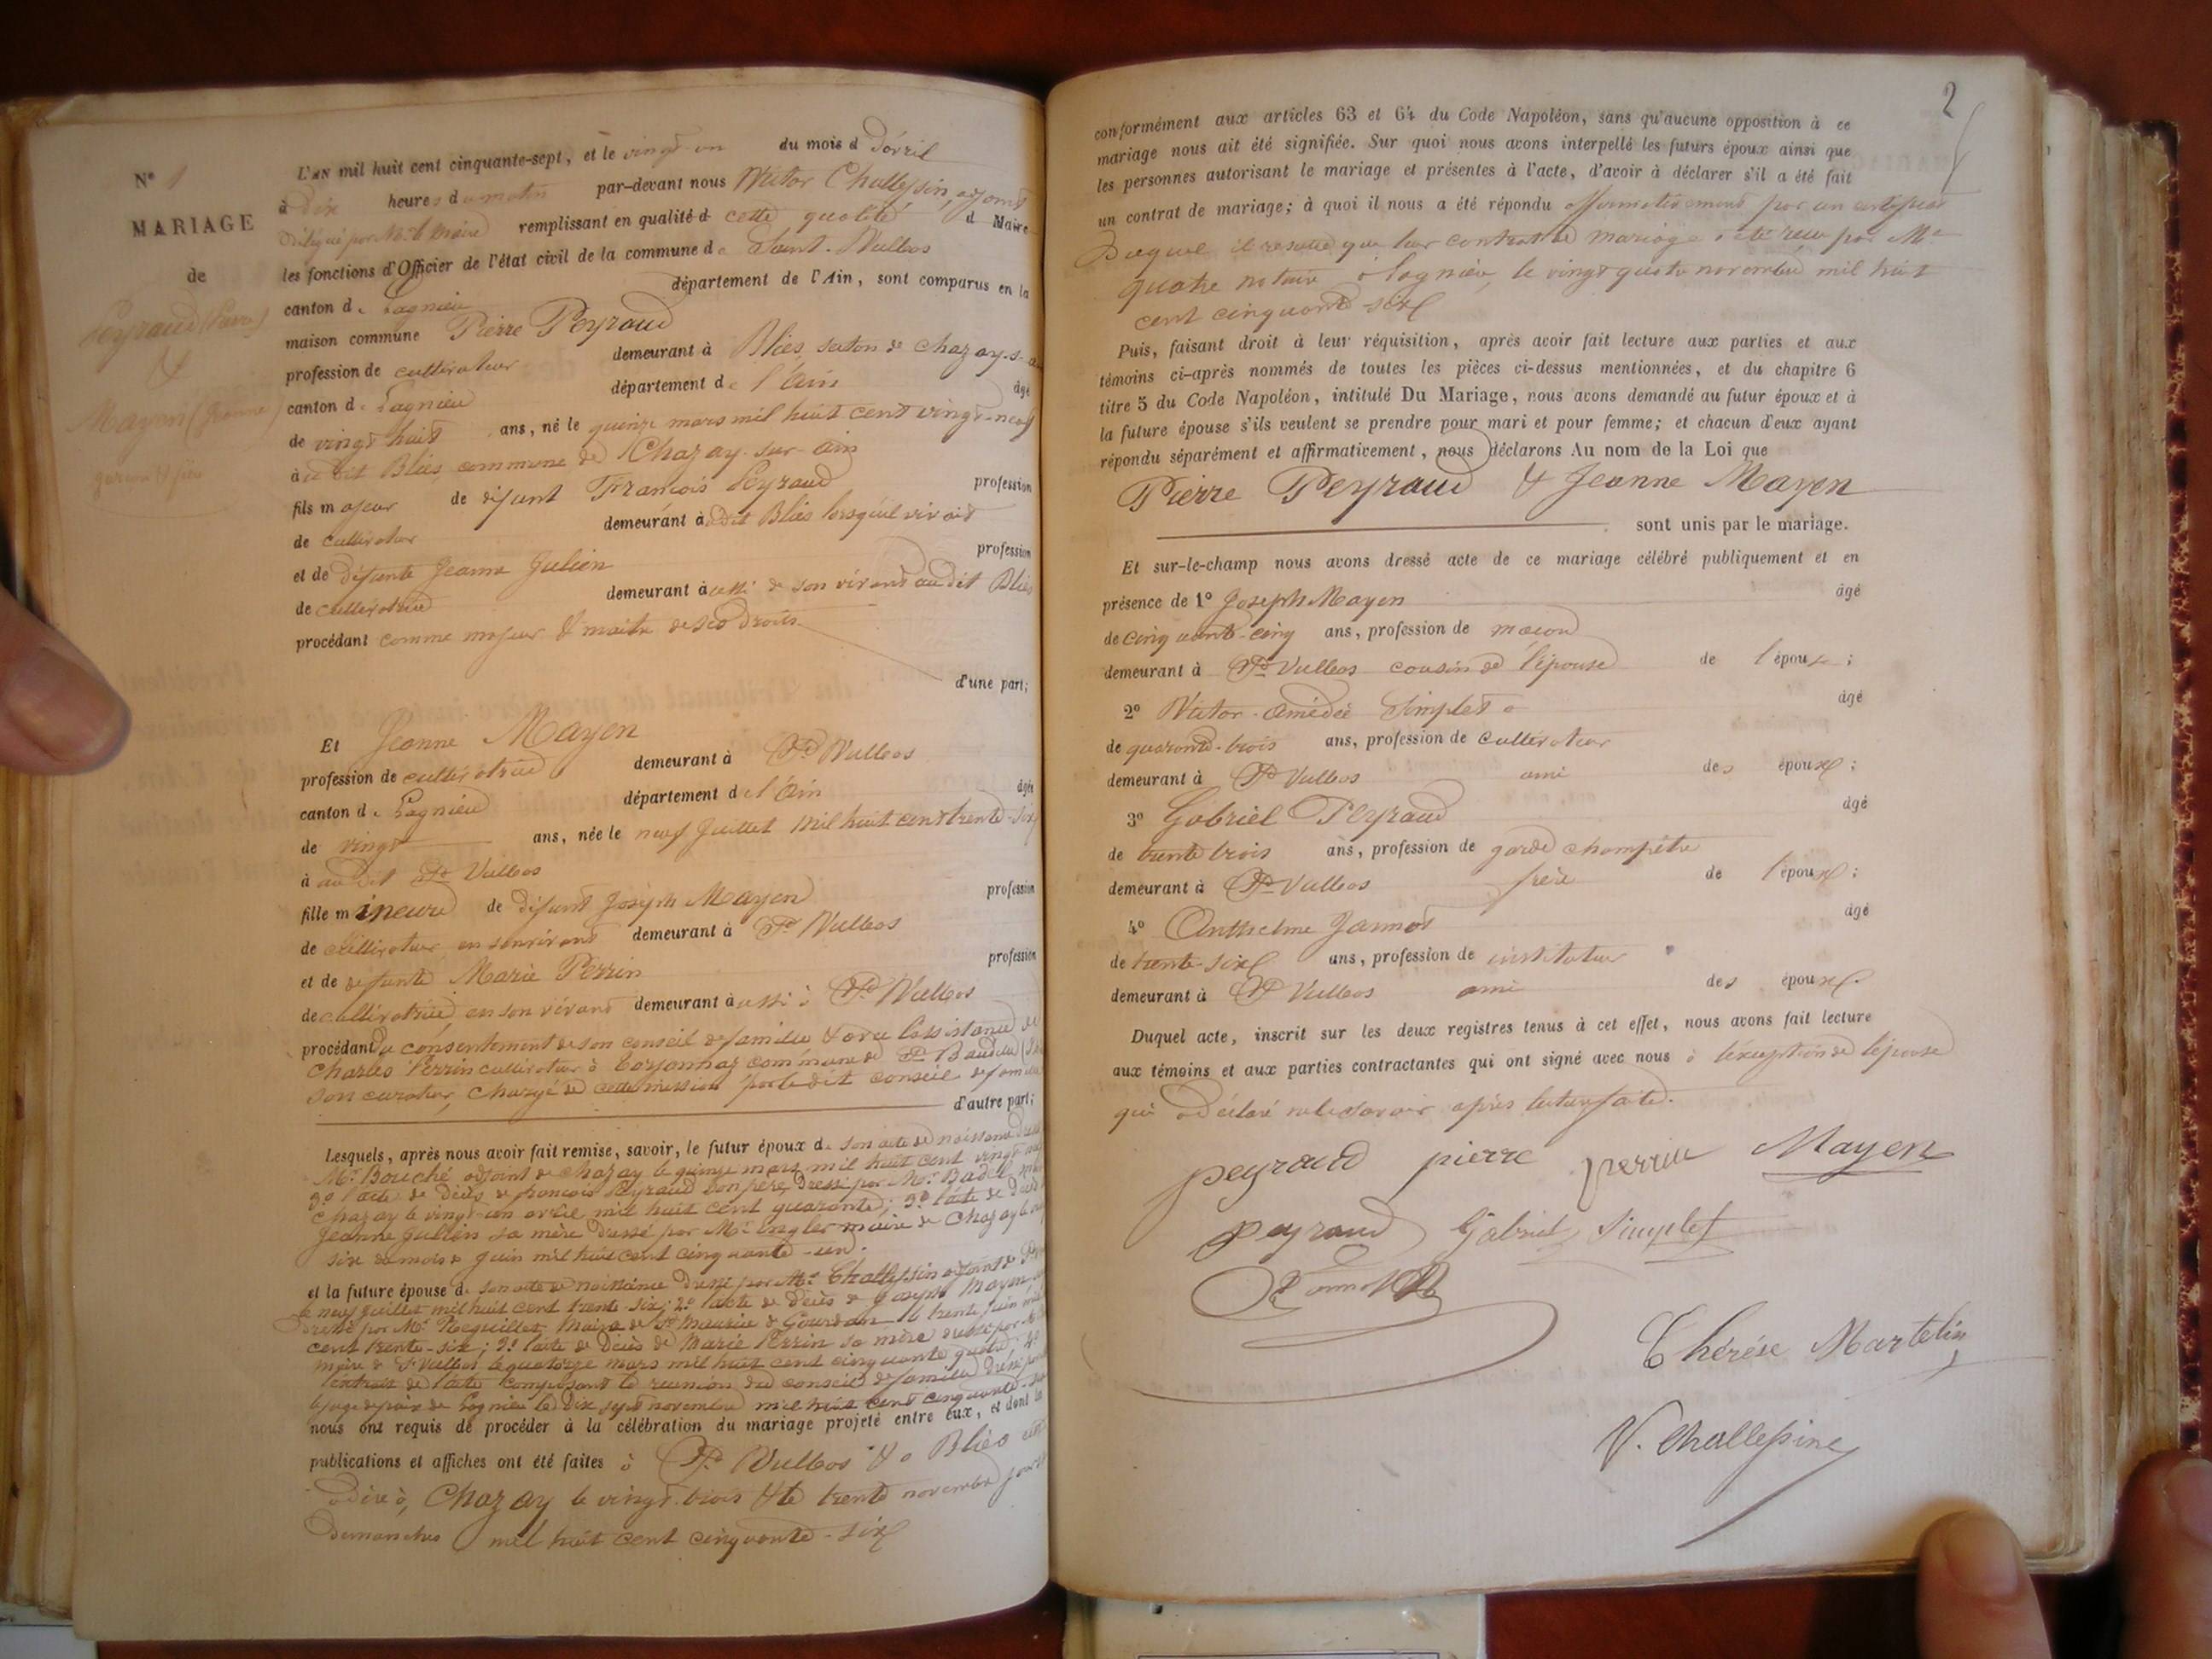 N° 1
MARIAGE
de
Peyraud (Pierre)
&
Mayen (Jeanne)
garçon & fille
L'AN mil huit cent cinquante-sept, et le vingt-un du mois d'avril
à dix heures du matin par-devant nous Victor Challessin, adjoint
délégué par Mr le Maire remplissant en qualité d cette qualité d Maire
les fonctions d'Officier de l'état civil de la commune de Saint-Vulbas
canton de Lagnieu département de l'Ain, sont comparus en la
maison commune Pierre Peyraud
profession de cultivateur demeurant à Bliès, section de Chazay-s-
canton de Lagnieu département de l'Ain âgé
de vingt huit ans, né le quinze mars mil huit cent vingt-neuf
à u dit Bliès, commune de Chazay-sur-ain
fils majeur de défunt François Peyraud profession
de cultivateur demeurant à u dit Bliès lorsqu'il vivait
et de défunte Jeanne Julien profession
de cultivatrice demeurant à ussi de son vivant au dit Bliès
procédant comme majeur & maître de ses droits
d'une part;
Et Jeanne Mayen
profession de cultivatrice demeurant à St Vulbas
canton de Lagnieu département de l'Ain âgée
de vingt ans, née le neuf Juillet mil huit cent trente-six
à au dit St Vulbas
fille mineure de défunt Joseph Mayen profession
de cultivateur en son vivant demeurant à St Vulbas
et de défunte Marie Perrin profession
de cultivatrice, en son vivant demeurant à ussi à St Vulbas
procédant du consentement de son conseil de famille & avec l'assistance de
Charles Perrin cultivateur à commune de St Baudille
son curateur, chargé de cette mission par le dit conseil de famille
d'autre part;
Lesquels, après nous avoir fait remise, savoir, le futur époux de son acte de naissance
Mr Bouché adjoint de Chazay le quinze mars mil huit cent vingt
2° l'acte de décès de françois Peyraud son père, dressé par Mr Badel
Chazay le vingt-un avril mil huit cent quarante; 3° l'acte de décès
Jeanne Julien sa mère dressé par Mr maire de Chazay le
six du mois de juin mil huit cent cinquante-un.
et la future épouse de son acte de naissance dressé par Mr Challessin adjoint de St
le neuf juillet mil huit cent trente-six; 2° l'acte de décès de Joseph Mayen
dressé par Mr Maire de St Maurice de Gourdan le trente juin mil
cent trente-six; 3° l'acte de décès de Marie Perrin sa mère dressé par Mr
maire de St Vulbas le quatorze mars mil huit cent cinquante quatre; 4°
l'extrait de l'acte composant la réunion du conseil de famille dressé par
le juge de paix de Lagnieu le dix sept novembre mil huit cent cinquante-six
nous ont requis de procéder à la célébration du mariage projeté entre eux, et dont la
publications et affiches ont été faites à St Vulbas & a Bliès
à dire à, Chazay le vingt-trois & le trente novembre jours
dimanches mil huit cent cinquante-six
2
conformément aux articles 63 et 64 du Code Napoléon, sans qu'aucune opposition à ce
mariage nous ait été signifiée. Sur quoi nous avons interpellé les futurs époux ainsi que
les personnes autorisant le mariage et présentes à l'acte, d'avoir à déclarer s'il a été fait
un contrat de mariage; à quoi il nous a été répondu affirmativement par un certificat
Duquel il résulte que leur contrat de mariage a été reçu par Me
quatre notaire à Lagnieu, le vingt quatre novembre mil huit
cent cinquante-six
Puis, faisant droit à leur réquisition, après avoir fait lecture aux parties et aux
témoins ci-après nommés de toutes les pièces ci-dessus mentionnées, et du chapitre 6
titre 5 du Code Napoléon, intitulé Du Mariage, nous avons demandé au futur époux et à
la future épouse s'ils veulent se prendre pour mari et pour femme; et chacun d'eux ayant
répondu séparément et affirmativement, nous déclarons Au nom de la Loi que
Pierre Peyraud & Jeanne Mayen
sont unis par le mariage.
Et sur-le-champ nous avons dressé acte de ce mariage célébré publiquement et en
présence de 1° Joseph Mayen âgé
de cinquante-cinq ans, profession de maçon
demeurant à St Vulbas cousin de l'épouse de l'époux;
2° Victor-Amédée Simplet âgé
de quarante-trois ans, profession de cultivateur
demeurant à St Vulbas ami des époux;
3° Gabriel Peyraud âgé
de trente trois ans, profession de garde champêtre
demeurant à St Vulbas frère de l'époux;
4° Anthelme Jannot âgé
de trente-six ans, profession de instituteur
demeurant à St Vulbas ami des époux.
Duquel acte, inscrit sur les deux registres tenus à cet effet, nous avons fait lecture
aux témoins et aux parties contractantes qui ont signé avec nous à l'exception de l'épouse
qui a déclaré ne le savoir après lecture faite.
peyraud pierre perrin Mayen
peyraud Gabriel Simplet
Thérése Martelin
V. Challessin